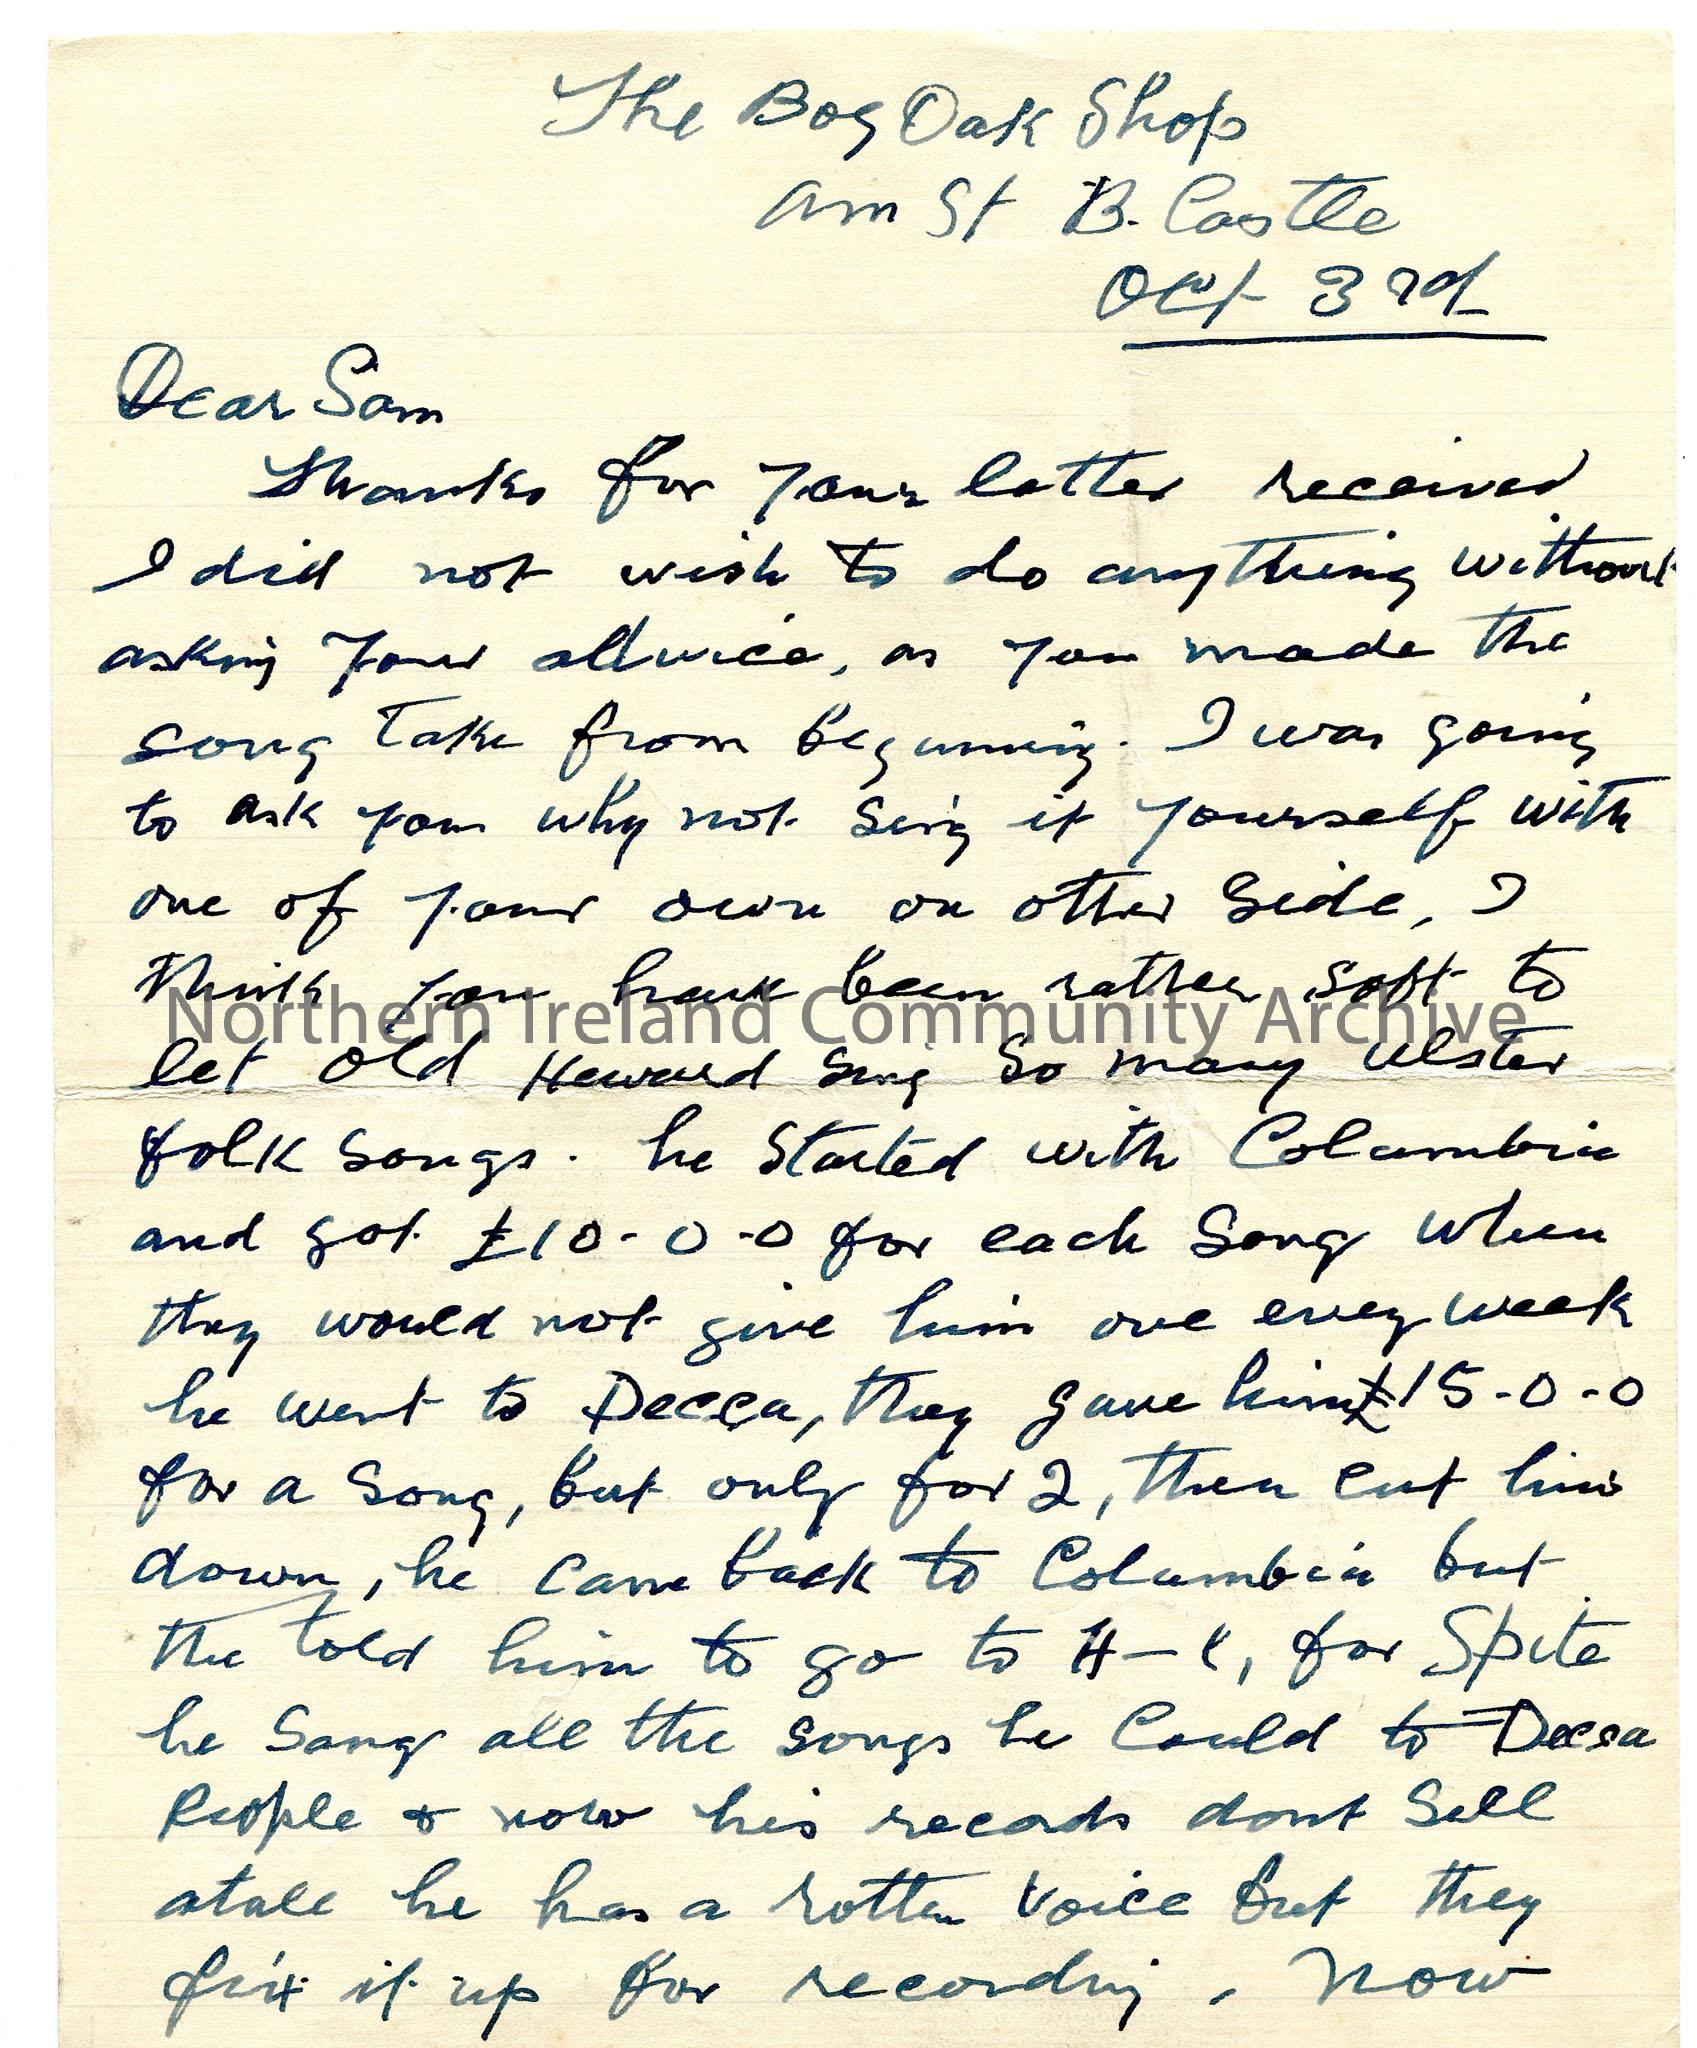 The Bog Oak Shop
Ann St B. Castle
Oct 3rd
Dear Sam
Thanks for your letter received
I did not wish to do anything without
asking your advice, as you made the
song take from beginning. I was going
to ask you why not sing it yourself with
one of your own on other side, I
think you have been rather soft to
Northern Ireland Community Archive
let old Heward sing so many Ulster
folk songs. he started with Columbia
and got £10-0-0 for each song when
they would not give him one every week
he went to Decca, they gave him £15-0-0
for a song, but only for 2, then cut him
down, he came back to Columbia but
the told him to go to H-l, for spite
he sang all the songs he could to Decca
People & now his records dont sell
atall he has a rotten voice but they
fix it up for recording, Now